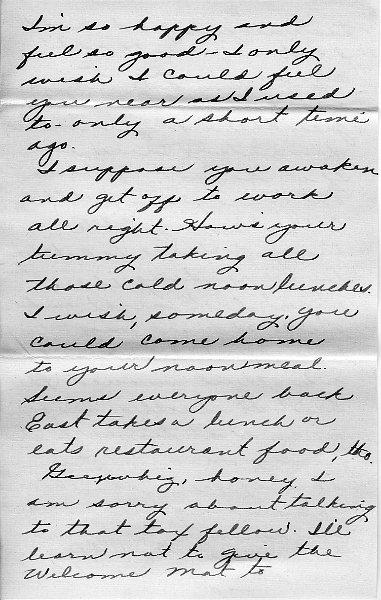 I'm so happy and
feel so good - I only
wish I could feel
you near as I used
to - only a short time
ago.
I suppose you awaken
and get off to work
all right. How's your
tummy taking all
those cold noon lunches.
I wish, someday, you
could come home
to your noon meal.
Seems everyone back
East takes a lunch or
eats restaurant food, tho.
Geewhiz, honey, I
am sorry about talking
to that tax fellow. I'll
learn not to give the
Welcome Mat to